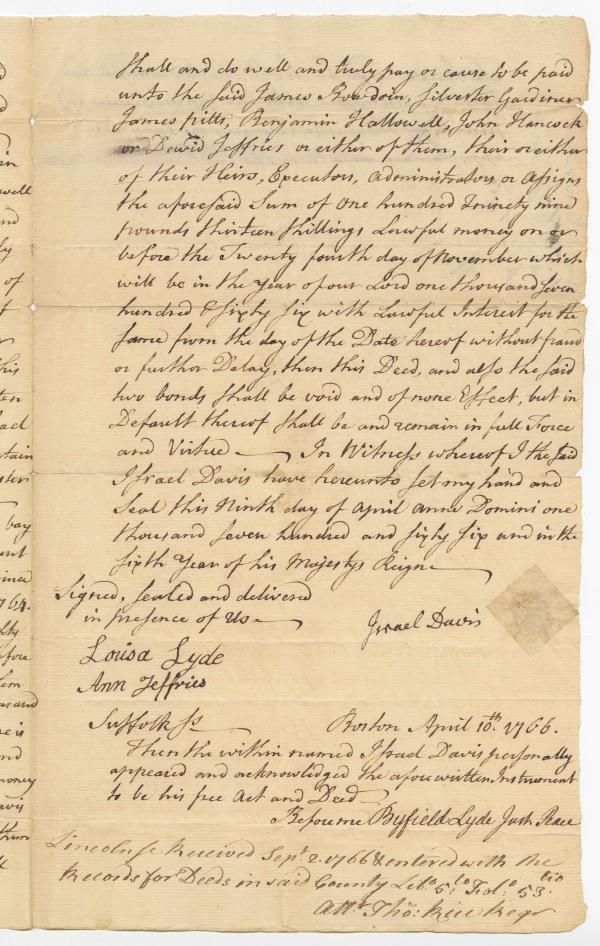 Shall and do well and truly pay or cause to be paid
unto the said James Bowdoin, Silvester Gardiner
James pitts, Benjamin Hallowell, John Hancock
or David Jeffries or either of them, their or either
of their Heirs, Executors, Administrators or Assigns
the aforesaid Sum of One hundred & ninety nine
pounds thirteen Shillings Lawful money on or
before the Twenty fourth day of November which
will be in the Year of our Lord one thousand Seven
hundred & sixty six with Lawful Interest for the
same from the day of the Date hereof without fraud
or further Delay, then this Deed, and also the said
two bonds Shall be void and of none Effect, but in
Default thereof Shall be and remain in full Force
and Virtue — In Witness whereof I the said
Israel Davis have hereunto set my hand and
Seal this Ninth day of April Anno Domini one
thousand Seven hundred and sixty six and in the
sixth Year of his Majestys Reign
Signed, sealed and delivered
in presence of Us
Israel Davis
Louisa Lyde
Ann Jeffries
Suffolk Ss. Boston April 10th. 1766.
Then the within named Israel Davis personally
appeared and acknowledged the aforewritten Instrument
to be his free Act and Deed
Before me Byfield Lyde Just. Peace
Lincoln ss Received Sept. 2. 1766 & entered with the
Records for Deeds in said County Lib.o 5.to Fol.o 53.tio
Att.r Tho.s Rice Regr